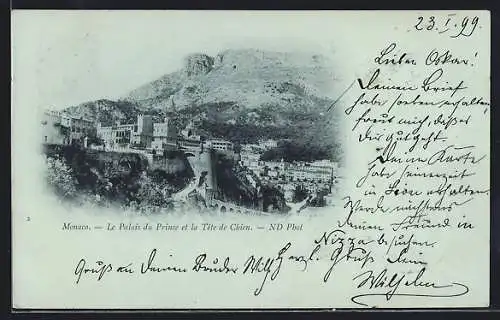 23. I. 99.
Lieber Oskar!
Deinen Brief
habe soeben erhalten,
freut mich, daß es
dir gut geht.
Deine Karte
habe seinerzeit
in Lion erhalten.
Werde nächstens
Deinen Freund in
Nizza besuchen.
Herzl. Gruß Dein
Wilhelm
Gruß an Deinen Bruder Wilh.
2
Monaco. — Le Palais du Prince et la Tête de Chien. — ND Phot